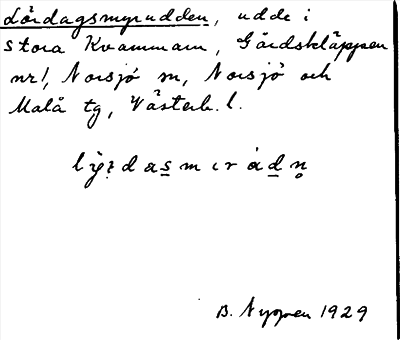 Lördagsmyrudden, udde i
Stora Kvammarn, Gårdskläppen
nr 1, Norsjö sn, Norsjö och
Malå tg, Västerb. l.
B. Nyman 1929